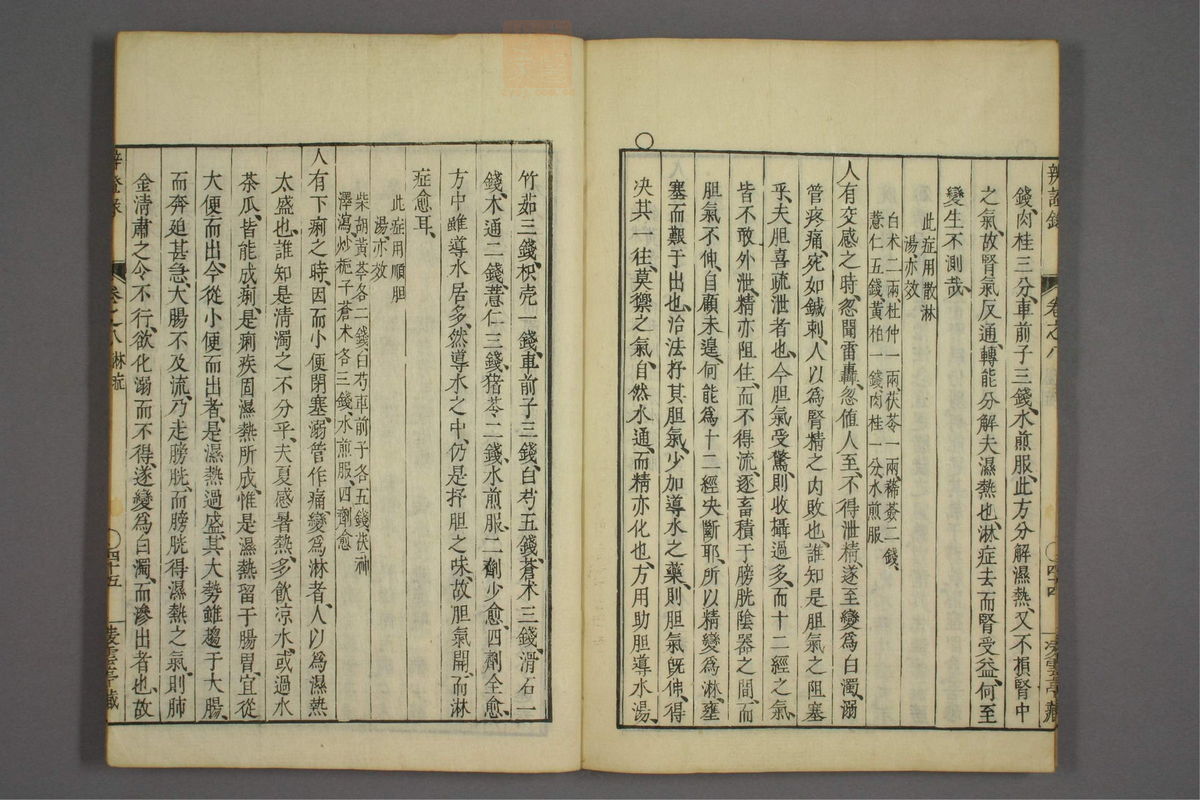 辨證錄 卷之八 四十四 凌雲亭藏
錢、肉桂三分、車前子三錢、水煎服、此方分解濕熱、又不損腎中
之氣、故腎氣反通、轉能分解夫濕熱也、淋症去而腎受益、何至
變生不測哉、
此症用散淋
湯亦效
白术二兩、杜仲一兩、茯苓一兩、豨薟二錢、
薏仁五錢、黃柏一錢、肉桂一分、水煎服
人有交感之時、忽聞雷轟、忽值人至、不得泄精、遂至變爲白濁、溺
管疼痛、宛如鍼刺、人以爲腎精之内敗也、誰知是胆氣之阻塞
乎、夫胆喜疏泄者也、今胆氣受驚、則收攝過多、而十二經之氣、
皆不敢外泄、精亦阻住、而不得流、逐畜積于膀胱陰器之間、而
胆氣不伸、自顧未遑、何能爲十二經决斷耶、所以精變爲淋、壅
塞而艱于出也、治法抒其胆氣、少加導水之藥、則胆氣旣伸、得
决其一往、莫禦之氣、自然水通、而精亦化也、方用助胆導水湯、
竹茹三錢、枳壳一錢、車前子三錢、白芍五錢、蒼术三錢、滑石一
錢、木通二錢、薏仁三錢、猪苓二錢、水煎服、二劑少愈、四劑全愈、
方中雖導水居多、然導水之中、仍是抒胆之味、故胆氣開、而淋
症愈耳、
此症用順胆
湯亦效
柴胡黃芩各二錢、白芍車前子各五錢、茯神
澤瀉、炒梔子蒼术各三錢、水煎服、四劑愈
人有下痢之時、因而小便閉塞、溺管作痛、變爲淋者、人以爲濕熱
太盛也、誰知是清濁之不分乎、夫夏感暑熱、多飲凉水、或過水
茶瓜、皆能成痢、是痢疾固濕熱所成、惟是濕熱留于腸胃、宜從
大便而出、今從小便而出者、是濕熱過盛、其大勢雖趨于大腸、
而奔廹甚急、大腸不及流、乃走膀胱、而膀胱得濕熱之氣、則肺
金清肅之令不行、欲化溺而不得、遂變爲白濁、而滲出者也、故
辨證錄 卷之八 淋症 四十五 凌雲亭藏